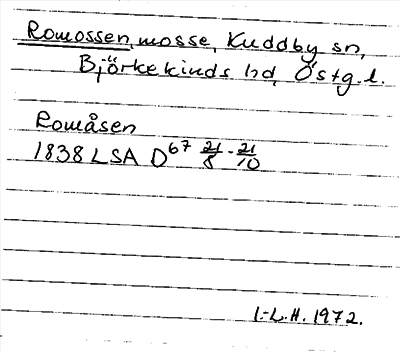 Romossen, mosse, Kuddby sn,
Björkekinds hd, Östg. l.
Romåsen
1838 LSA D⁶⁷ 21/8 - 21/10
I.-L.H. 1972.